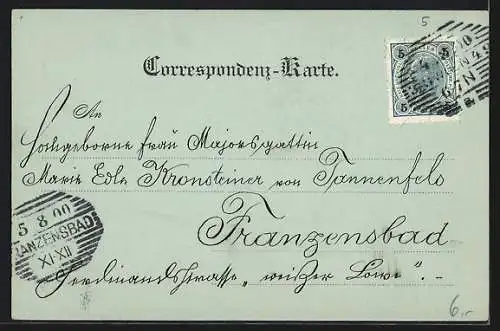 5
Correspondenz-Karte.
5 5
5 5
An
Hochgeborne Frau Majorsgattin
Marie Edle Kronsteiner von Tannenfels
Franzensbad
5.8.00
FRANZENSBAD
XI-XII
Ferdinandstrasse "weißer Löwe".-
6,-